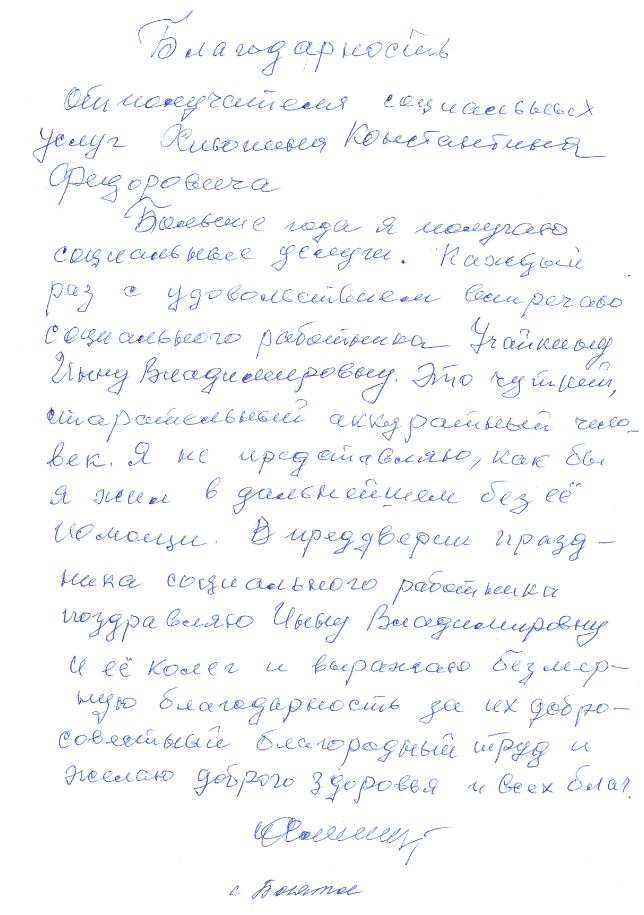 Благодарность
От получателя социальных
услуг Константина
Фёдоровича
Больше года я получаю
социальные услуги. Каждый
раз с удовольствием встречаю
социального работника Учайкину
Инну Владимировну. Это чуткий,
старательный аккуратный чело-
век. Я не представляю, как бы
я жил в дальнейшем без её
помощи. В преддверии празд-
ника социального работника
поздравляю Инну Владимировну
и её колег и выражаю безмер-
ную благодарность за их добро-
совестный благородный труд и
желаю доброго здоровья и всех благ.
с. Богатое